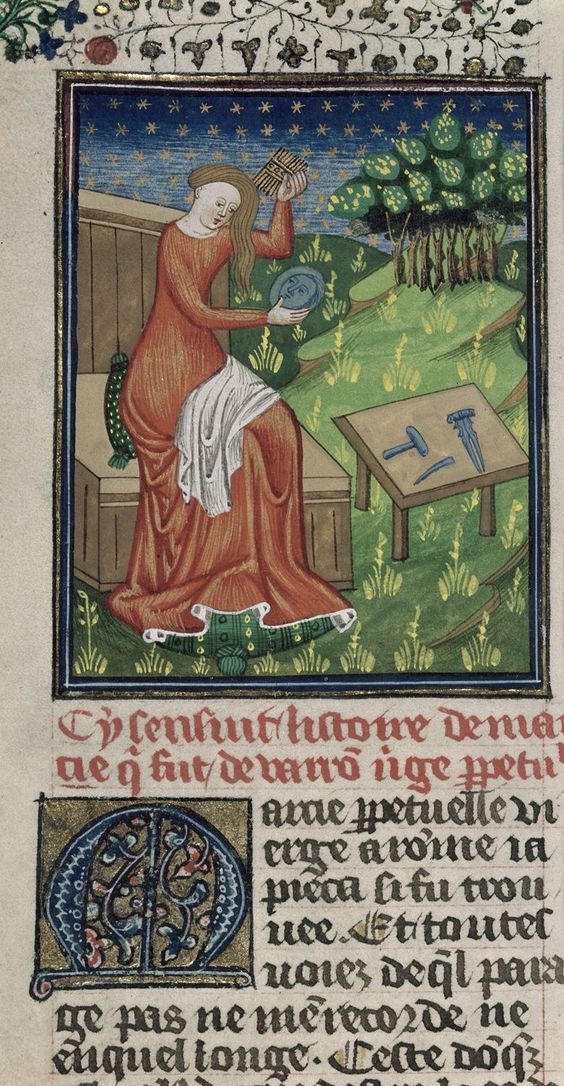 Cy sensuit listoire de mar
cie q̃ fut de varrõ v̾ge ꝑpetu
Marcie ꝑpetuelle vi
erge a rõme ia
pieca si fu trou
uee. Et toutes
uoiez de q̃l para
ge pas ne me recorde ne
enquel longe. Ceste dõq̃z